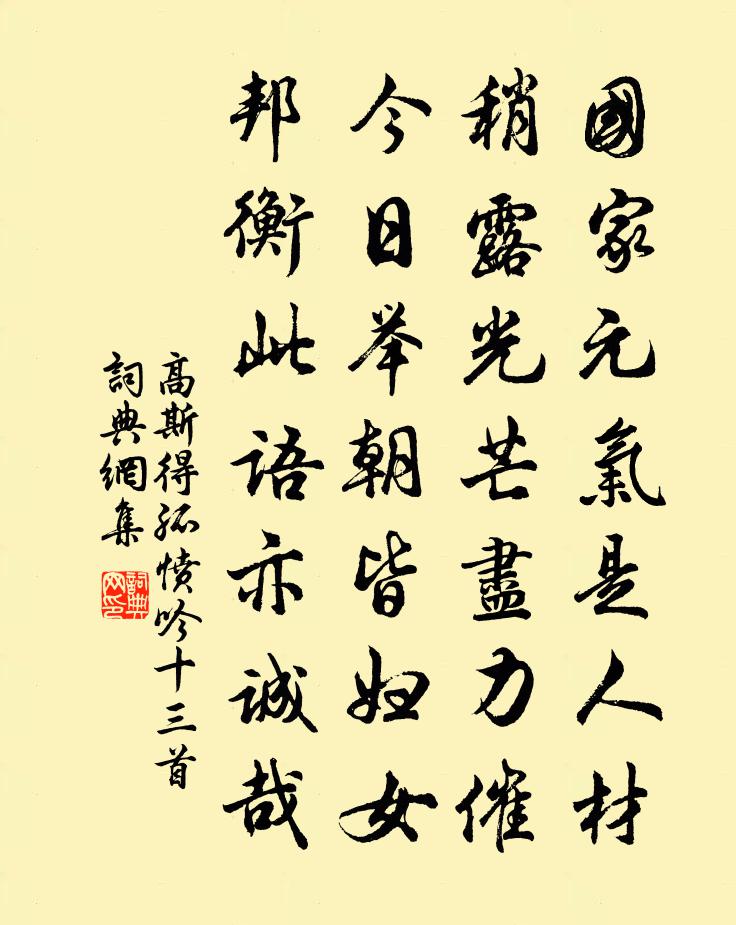 國家元氣是人材
稍露光芒盡力催
今日举朝皆妇女
邦衡此語亦誠哉
高斯得孤愤吟十三首
詞典網集
詞典网印